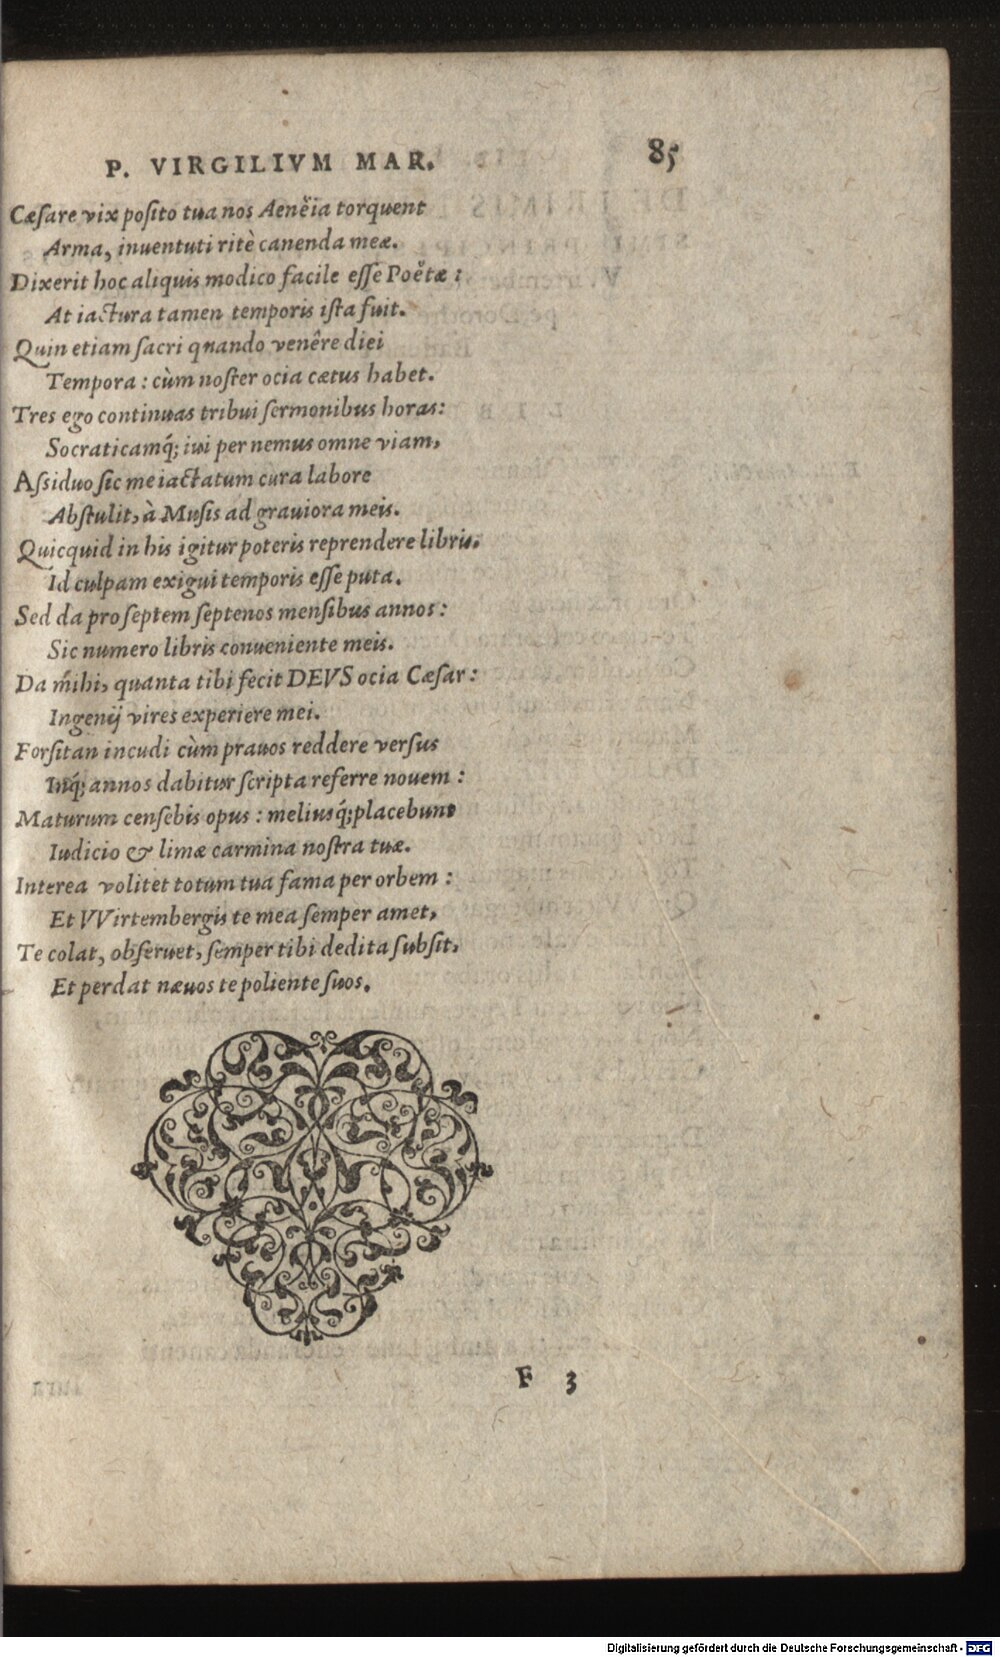 P. VIRGILIVM MAR. 85
Cæſare vix poſito tua nos Aenëia torquent
Arma, inuentuti ritè canenda meæ.
Dixerit hoc aliquis modico facile eſſe Poëtæ:
At iactura tamen temporis iſta fuit.
Quin etiam ſacri quando venêre diei
Tempora: cùm noſter ocia cætus habet.
Tres ego continuas tribui ſermonibus horas:
Socraticamq́; iui per nemus omne viam,
Aſsiduo ſic me iactatum cura labore
Abſtulit, à Muſis ad grauiora meis.
Quicquid in his igitur poteris reprendere libris.
Id culpam exigui temporis eſſe puta.
Sed da pro ſeptem ſeptenos menſibus annos:
Sic numero libris conueniente meis.
Da m̃ihi, quanta tibi fecit DEVS ocia Cæſar:
Ingenij vires experiere mei.
Forſitan incudi cùm prauos reddere verſus
Inq́; annos dabitur ſcripta referre nouem:
Maturum cenſebis opus: meliusq́; placebunt
Iudicio & limæ carmina noſtra tuæ.
Interea volitet totum tua fama per orbem:
Et VVirtembergis te mea ſemper amet,
Te colat, obſeruet, ſemper tibi dedita ſubſit,
Et perdat næuos te poliente ſuos.
F 3
Digitalisierung gefördert durch die Deutsche Forschungsgemeinschaft - DFG